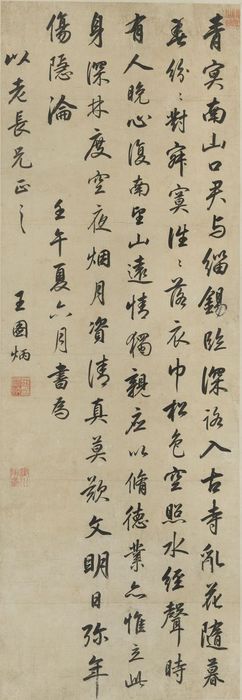 青冥南山口君与緇錫隣深路入古寺亂花隨暮
春紛〻對寂寞往〻落衣巾松色空照水經聲時
有人晚心復南望山遠情獨親应以脩德業亦惟立此
身深林度空夜烟月資清真莫歎文明日弥年
傷隱淪
壬午夏六月書為
以老長兄正之
王國炳